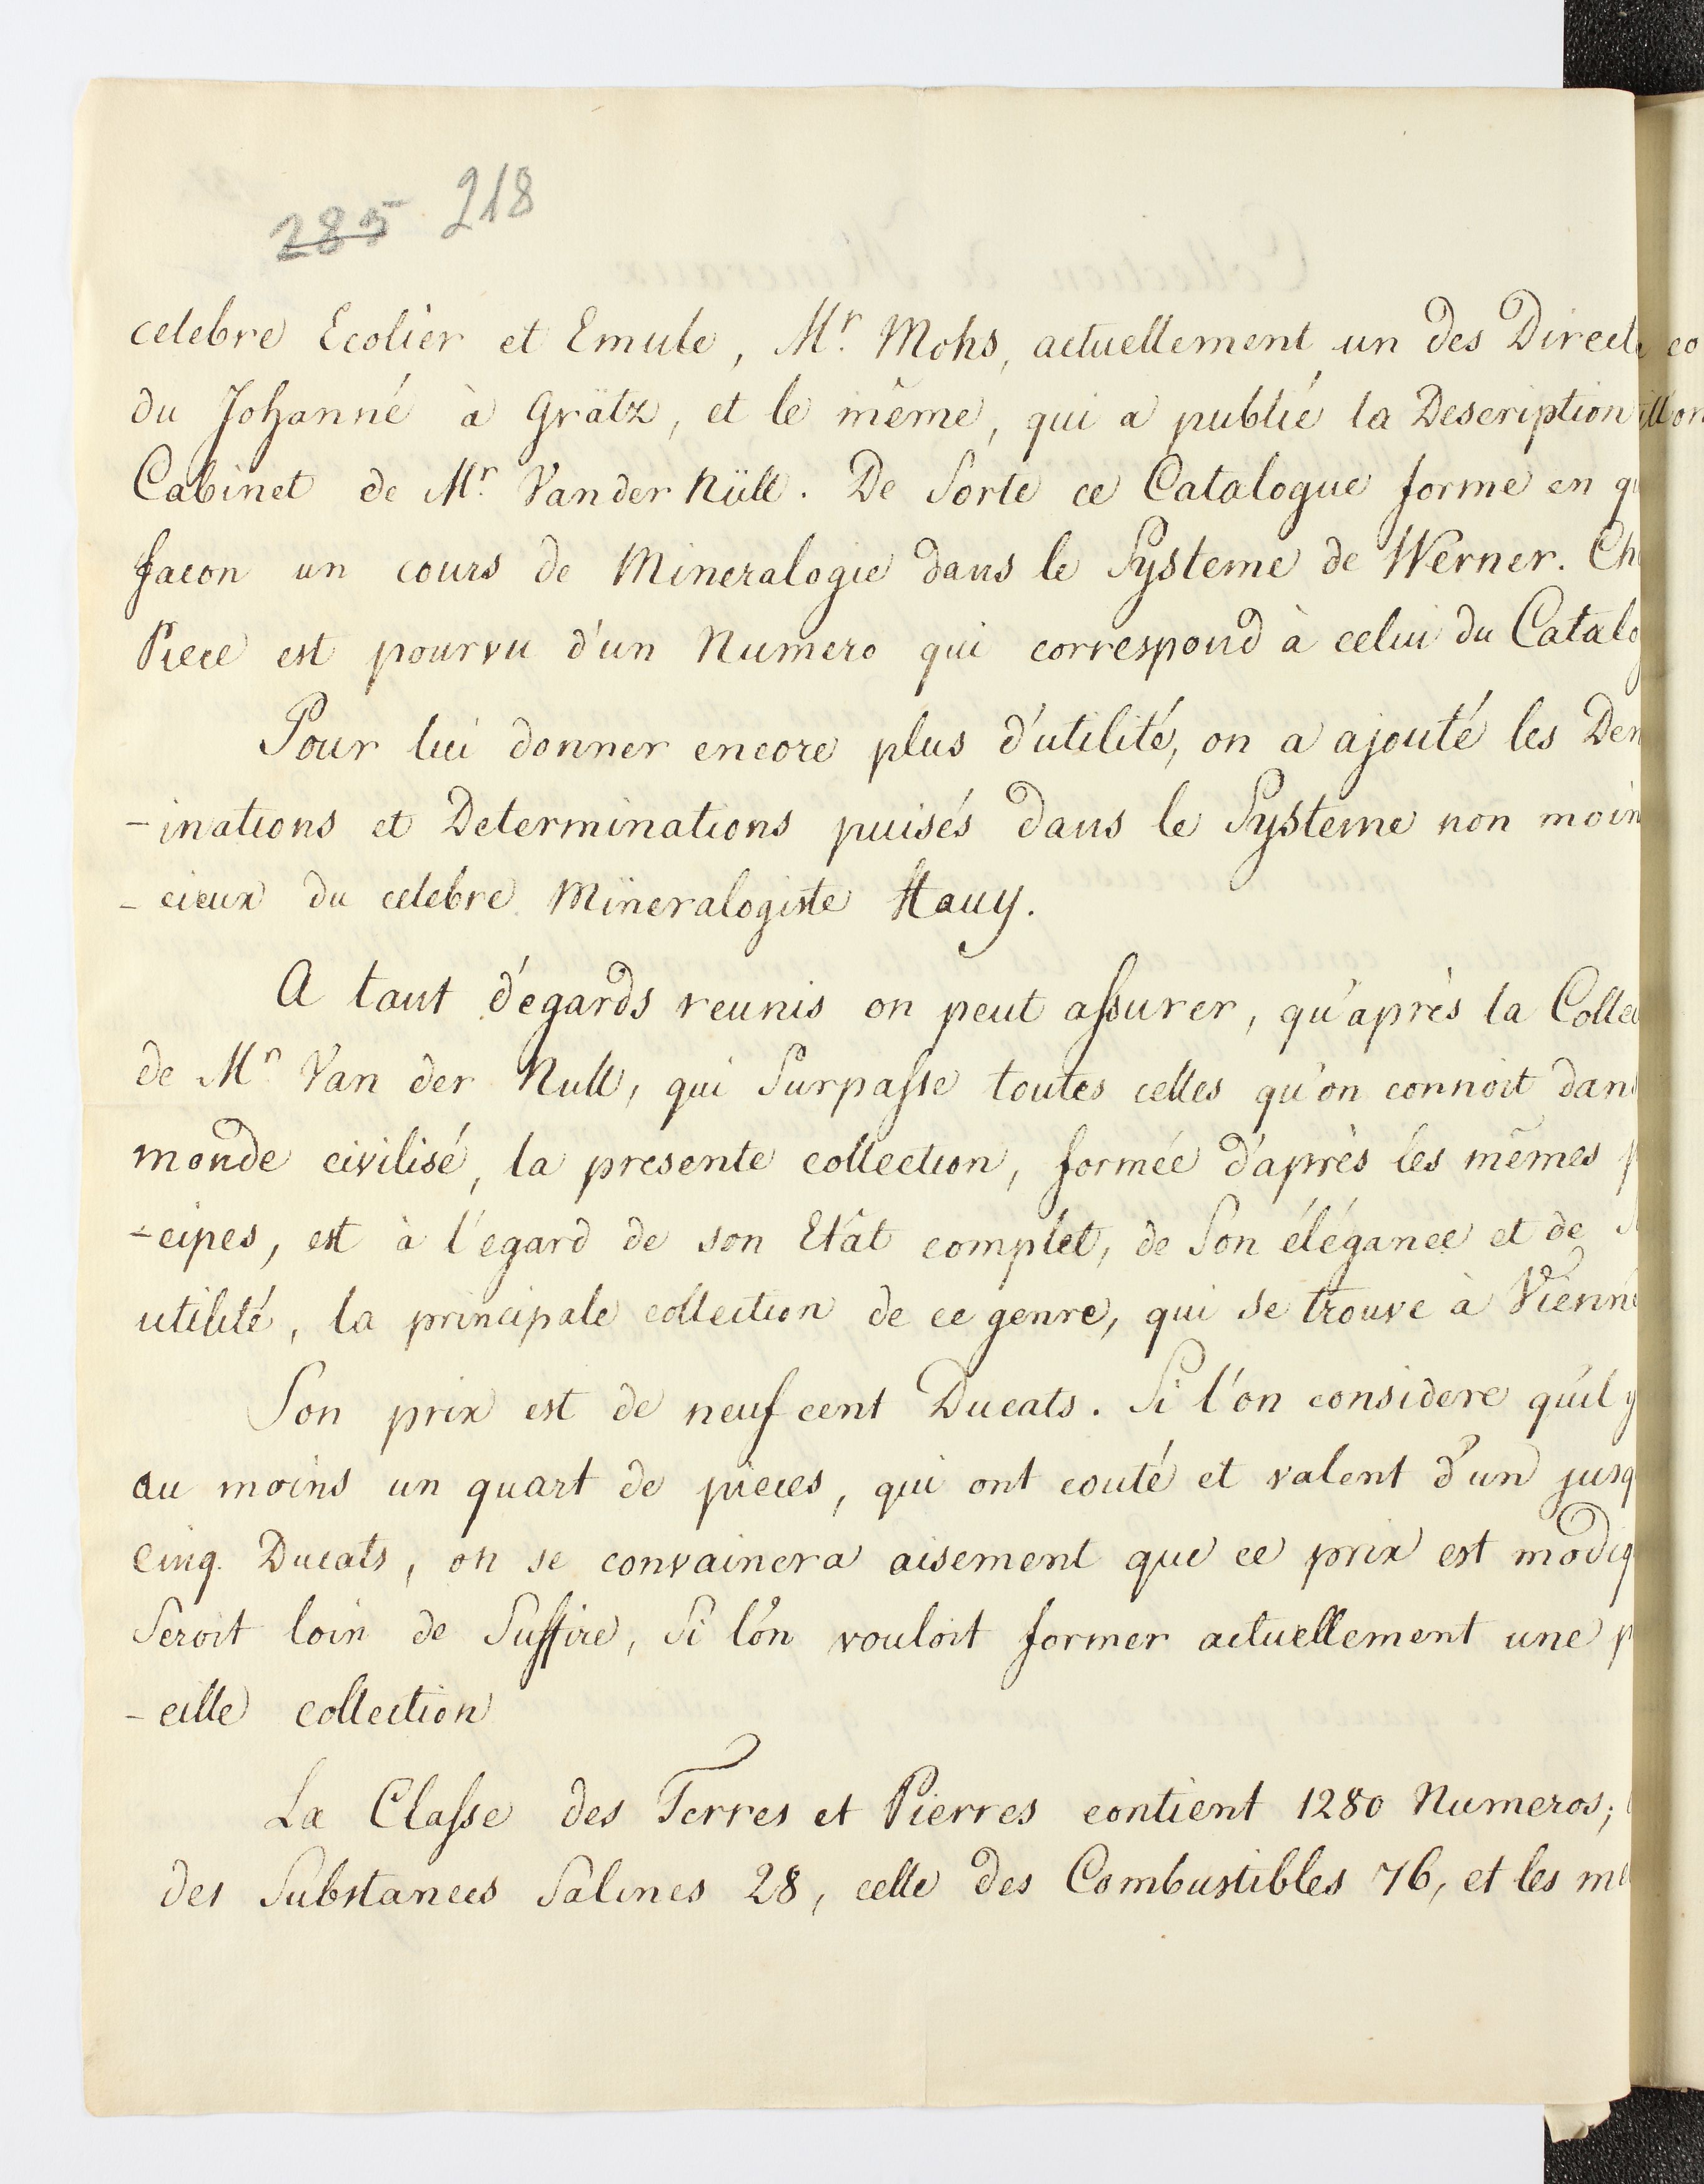 285 218
celebre Ecolier et Emule, Mr. Mohs, actuellement un des Directe
du Johanné à Grätz, et le même, qui a publié la Description
Cabinet de Mr. Vander Nüll. De Sorte ce Catalogue forme en qu
facon un cours de Mineralogie dans le Systeme de Werner. Ch
Piece est pourvu d'un Numero qui correspond à celui du Catalog
Pour lui donner encore plus d'utilité, on a ajouté les Den
-inations et Determinations puisés dans le Systeme non moin
-cieux du celebre Mineralogiste Hauy.
A tant d'egards reunis on peut assurer, qu'après la Collec
de Mr Van der Null, qui Surpasse toutes celles qu'on connoit dans
monde civilisé, la presente collection, formée d'après les mêmes p
-cipes, est à l'egard de son Etât complet, de Son élégance et de S
utilité, la principale collection de ce genre, qui se trouve à Vienne
Son prix est de neuf cent Ducats. Si l'on considere qu'il y
au moins un quart de pieces, qui ont couté et valent d'un jusq
Cinq Ducats, on se convaincra aisement que ce prix est modiq
Seroit loin de Suffire, Si l'on vouloit former actuellement une p
-eille collection
La Classe des Terres et Pierres contient 1280 Numeros;
des Substances Salines 28, celle des Combustibles 76, et les me